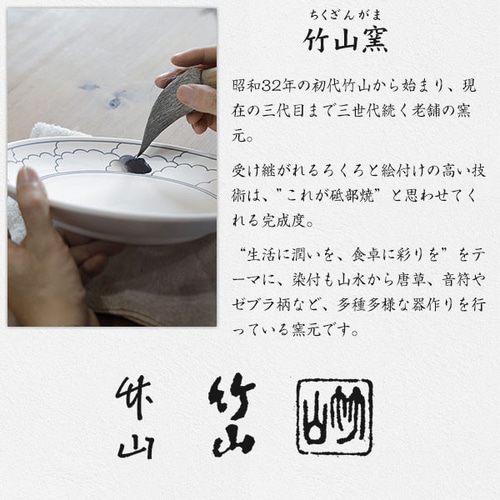 ちくざんがま
竹山窯
昭和32年の初代竹山から始まり、現
在の三代目まで三世代続く老舗の窯
元。
受け継がれるろくろと絵付けの高い技
術は、”これが砥部焼”と思わせてく
れる完成度。
“生活に潤いを、食卓に彩りを”をテ
ーマに、染付も山水から唐草、音符や
ゼブラ柄など、多種多様な器作りを行
っている窯元です。
竹山
竹山
竹山